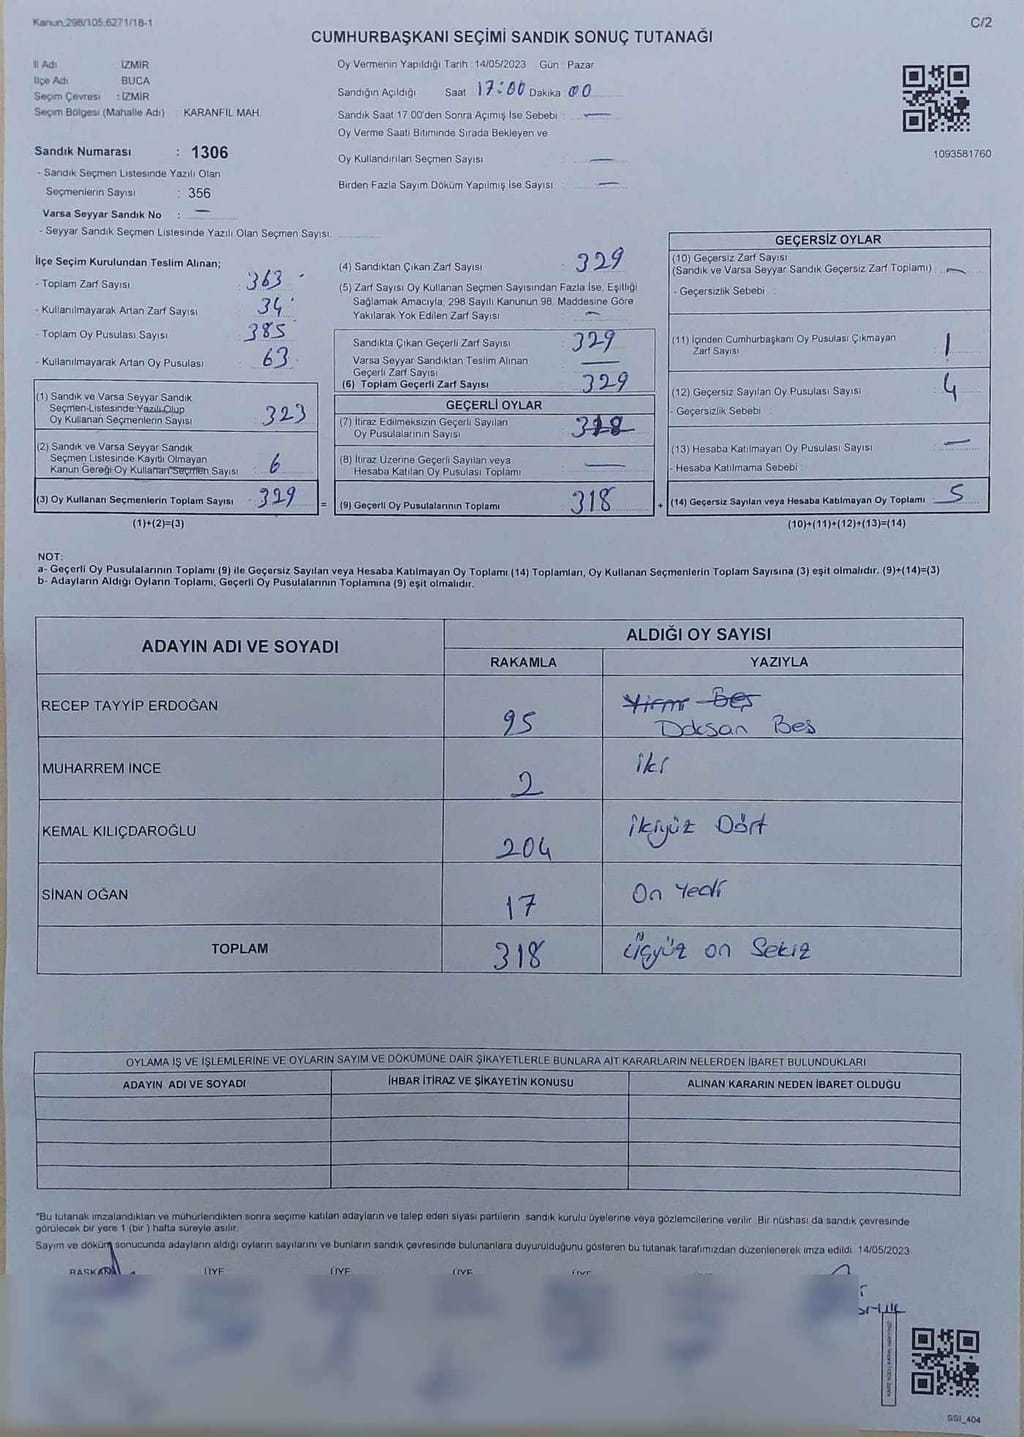 Kanun.298/105,6271/18-1
C/2
CUMHURBAŞKANI SEÇİMİ SANDIK SONUÇ TUTANAĞI
İl Adı : İZMİR
İlçe Adı : BUCA
Seçim Çevresi : İZMİR
Seçim Bölgesi (Mahalle Adı) : KARANFİL MAH.
Sandık Numarası : 1306
- Sandık Seçmen Listesinde Yazılı Olan
Seçmenlerin Sayısı : 356
Varsa Seyyar Sandık No : —
- Seyyar Sandık Seçmen Listesinde Yazılı Olan Seçmen Sayısı:
Oy Vermenin Yapıldığı Tarih : 14/05/2023 Gün : Pazar
Sandığın Açıldığı Saat 17:00 Dakika 00
Sandık Saat 17.00'den Sonra Açılmış İse Sebebi : —
Oy Verme Saati Bitiminde Sırada Bekleyen ve
Oy Kullandırılan Seçmen Sayısı : —
Birden Fazla Sayım Döküm Yapılmış İse Sayısı : —
1093581760
İlçe Seçim Kurulundan Teslim Alınan;
- Toplam Zarf Sayısı : 363
- Kullanılmayarak Artan Zarf Sayısı : 34
- Toplam Oy Pusulası Sayısı : 385
- Kullanılmayarak Artan Oy Pusulası : 63
(1) Sandık ve Varsa Seyyar Sandık
Seçmen Listesinde Yazılı Olup
Oy Kullanan Seçmenlerin Sayısı : 323
(2) Sandık ve Varsa Seyyar Sandık
Seçmen Listesinde Kayıtlı Olmayan
Kanun Gereği Oy Kullanan Seçmen Sayısı : 6
(3) Oy Kullanan Seçmenlerin Toplam Sayısı : 329
(1)+(2)=(3)
=
(4) Sandıktan Çıkan Zarf Sayısı : 329
(5) Zarf Sayısı Oy Kullanan Seçmen Sayısından Fazla İse, Eşitliği
Sağlamak Amacıyla, 298 Sayılı Kanunun 98. Maddesine Göre
Yakılarak Yok Edilen Zarf Sayısı : —
Sandıkta Çıkan Geçerli Zarf Sayısı : 329
Varsa Seyyar Sandıktan Teslim Alınan
Geçerli Zarf Sayısı : —
(6) Toplam Geçerli Zarf Sayısı : 329
GEÇERLİ OYLAR
(7) İtiraz Edilmeksizin Geçerli Sayılan
Oy Pusulalarının Sayısı : 318
(8) İtiraz Üzerine Geçerli Sayılan veya
Hesaba Katılan Oy Pusulası Toplamı : —
(9) Geçerli Oy Pusulalarının Toplamı : 318
+
GEÇERSİZ OYLAR
(10) Geçersiz Zarf Sayısı
(Sandık ve Varsa Seyyar Sandık Geçersiz Zarf Toplamı) : —
- Geçersizlik Sebebi :
(11) İçinden Cumhurbaşkanı Oy Pusulası Çıkmayan
Zarf Sayısı : 1
(12) Geçersiz Sayılan Oy Pusulası Sayısı : 4
- Geçersizlik Sebebi :
(13) Hesaba Katılmayan Oy Pusulası Sayısı : —
- Hesaba Katılmama Sebebi :
(14) Geçersiz Sayılan veya Hesaba Katılmayan Oy Toplamı : 5
(10)+(11)+(12)+(13)=(14)
NOT:
a- Geçerli Oy Pusulalarının Toplamı (9) ile Geçersiz Sayılan veya Hesaba Katılmayan Oy Toplamı (14) Toplamları, Oy Kullanan Seçmenlerin Toplam Sayısına (3) eşit olmalıdır. (9)+(14)=(3)
b- Adayların Aldığı Oyların Toplamı, Geçerli Oy Pusulalarının Toplamına (9) eşit olmalıdır.
ADAYIN ADI VE SOYADI
ALDIĞI OY SAYISI
RAKAMLA YAZIYLA
RECEP TAYYİP ERDOĞAN 95 Yirmi Beş
Doksan Beş
MUHARREM İNCE 2 iki
KEMAL KILIÇDAROĞLU 204 ikiyüz Dört
SİNAN OĞAN 17 On Yedi
TOPLAM 318 üçyüz on Sekiz
OYLAMA İŞ VE İŞLEMLERİNE VE OYLARIN SAYIM VE DÖKÜMÜNE DAİR ŞİKAYETLERLE BUNLARA AİT KARARLARIN NELERDEN İBARET BULUNDUKLARI
ADAYIN ADI VE SOYADI İHBAR İTİRAZ VE ŞİKAYETİN KONUSU ALINAN KARARIN NEDEN İBARET OLDUĞU
*Bu tutanak imzalandıktan ve mühürlendikten sonra seçime katılan adayların ve talep eden siyasi partilerin sandık kurulu üyelerine veya gözlemcilerine verilir. Bir nüshası da sandık çevresinde
görülecek bir yere 1 (bir ) hafta süreyle asılır.
Sayım ve döküm sonucunda adayların aldığı oyların sayılarını ve bunların sandık çevresinde bulunanlara duyurulduğunu gösteren bu tutanak tarafımızdan düzenlenerek imza edildi. 14/05/2023
BAŞKAN ÜYE ÜYE ÜYE ÜYE
SSI_404